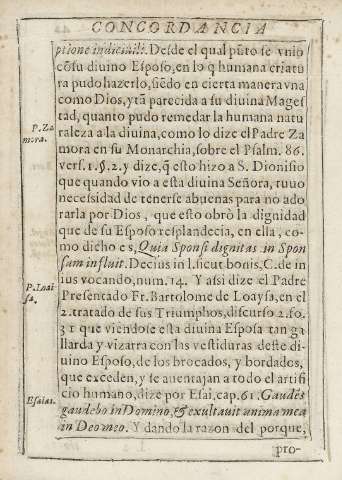 CONCORDANCIA
ptione indiciuili. Desde el qual pũto se vnio
cõ su diuino Esposo, en lo q̃ humana criatu
ra pudo hazerlo, siẽdo en cierta manera vna
como Dios, y tã parecida a su diuina Mages
tad, quanto pudo remedar la humana natu
P. Za
mora.
raleza a la diuina, como lo dize el Padre Za
mora en su Monarchia, sobre el Psalm. 86.
vers. 1. §. 2. y dize, q̃ esto hizo a S. Dionisio
que quando vio a esta diuina Señora, tuuo
necessidad de tenerse abuenas para no ado
rarla por Dios, que esto obrò la dignidad
que de su Esposo resplandecia, en ella, co-
mo dicho es, Quia Sponsi dignitas in Spon
sam influit. Decius in l. sicut bonis, C. de in
P. Loai
sa.
ius vocando, num. 14. Y assi dize el Padre
Presentado Fr. Bartolome de Loaysa, en el
2. tratado de sus Triumphos, discurso 2. fo.
31 que viendose esta diuina Esposa tan ga
llarda y vizarra con las vestiduras deste di-
uino Esposo, de los brocados, y bordados,
que exceden, y se auentajan a todo el artifi
Esaias.
cio humano, dize por Esai, cap. 61. Gaudẽs
gaudebo in Domino, & exultauit anima mea
in Deo meo. Y dando la razon del porque,
pro-